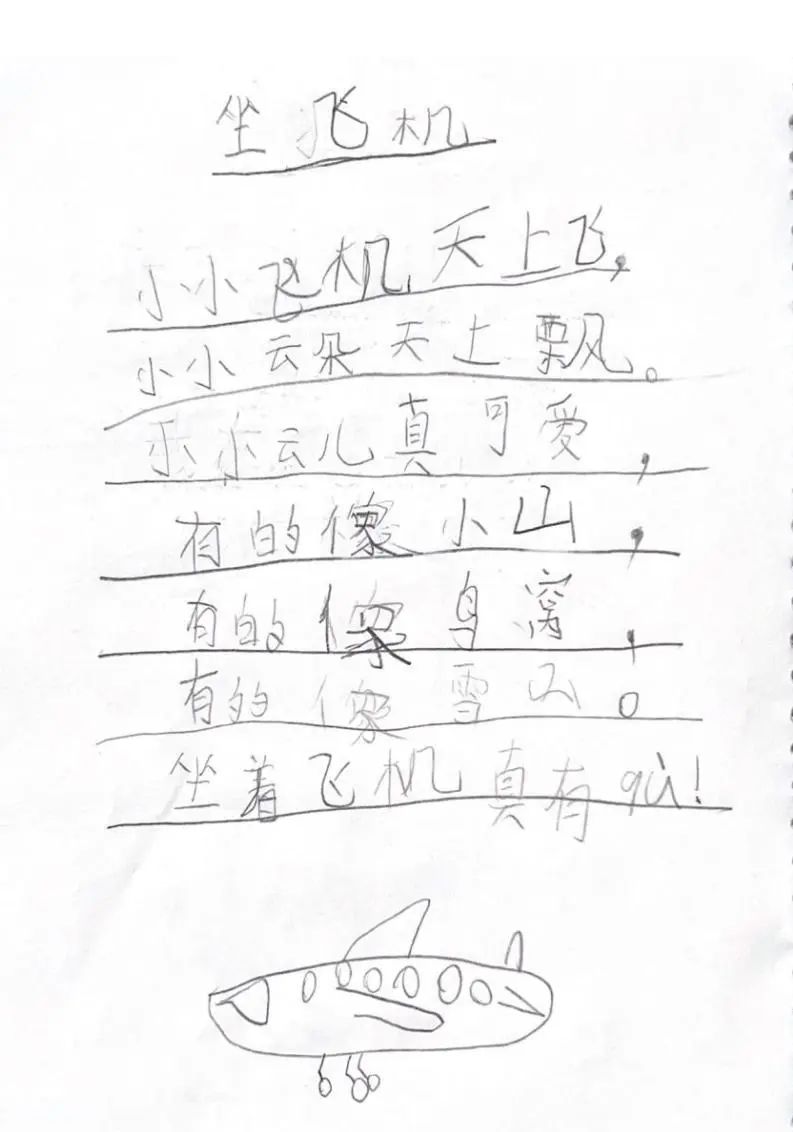 坐飞机
小小飞机天上飞,
小小云朵天上飘。
小小云儿真可爱,
有的像小山,
有的像鸟窝,
有的像雪山。
坐着飞机真有qù!